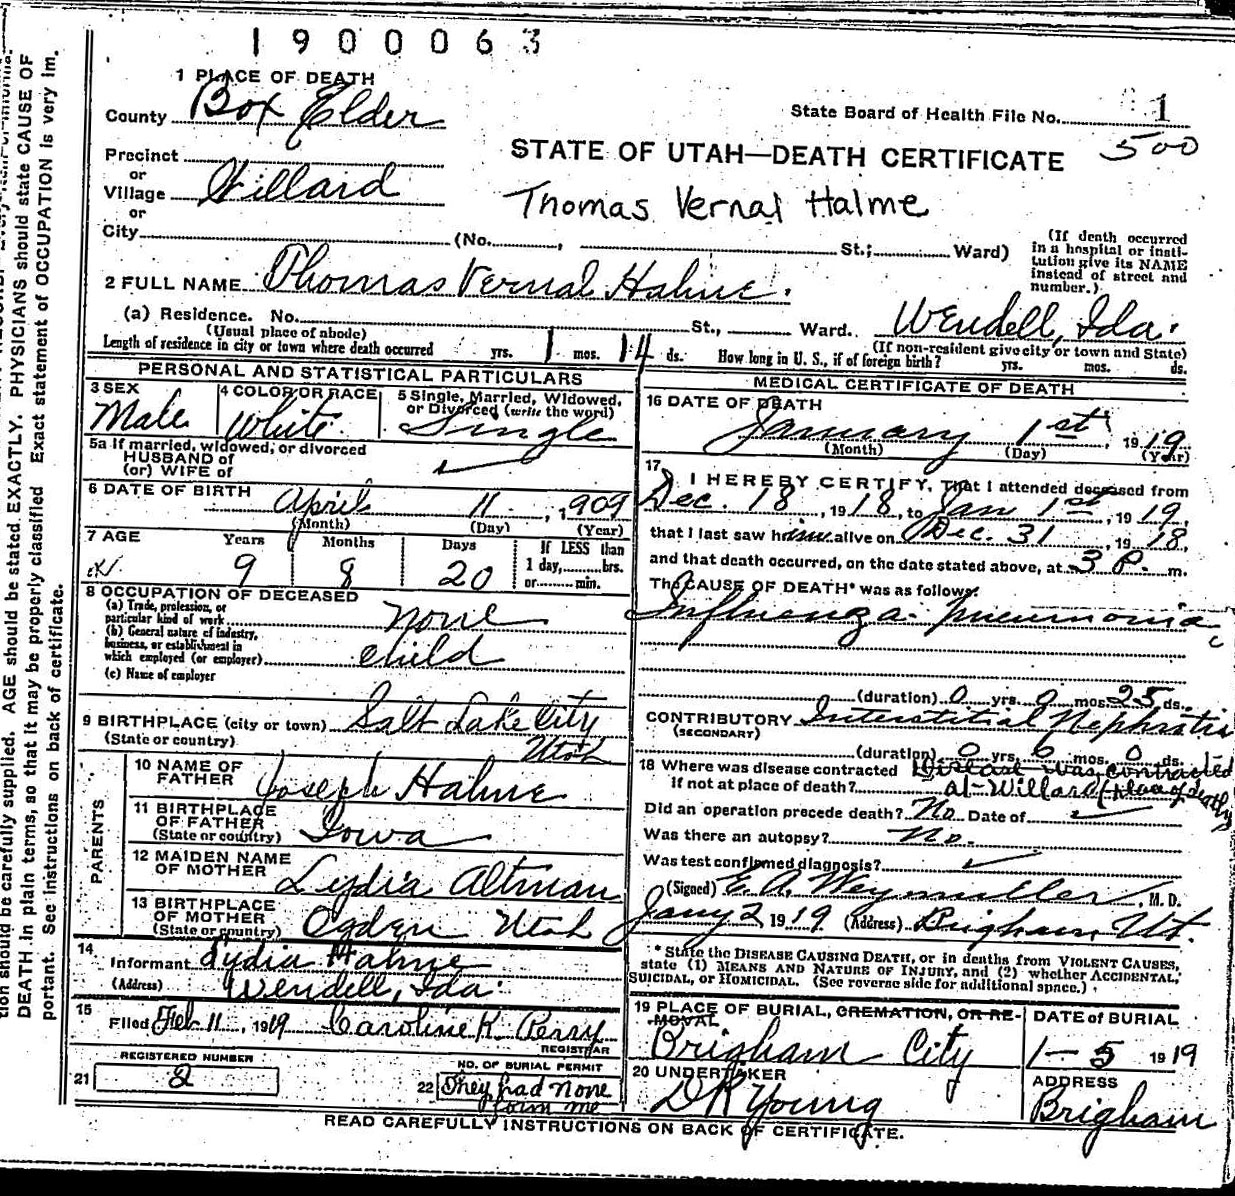 1900063
1 PLACE OF DEATH
County Box Elder
State Board of Health File No. 1
500
STATE OF UTAH—DEATH CERTIFICATE
Precinct
or
Village Willard
or
Thomas Vernal Halme
City (No. , St.; Ward)
(If death occurred in a hospital or institution give its NAME instead of street and number.)
2 FULL NAME Thomas Vernal Halme.
(a) Residence. No. St., Ward. Wendell, Ida.
(Usual place of abode) (If non-resident give city or town and State)
Length of residence in city or town where death occurred yrs. 1 mos. 14 ds. How long in U. S., if of foreign birth? yrs. mos. ds.
PERSONAL AND STATISTICAL PARTICULARS
3 SEX Male
4 COLOR OR RACE White
5 Single, Married, Widowed, or Divorced (write the word) Single
5a If married, widowed, or divorced
HUSBAND of
(or) WIFE of
6 DATE OF BIRTH April 11, 1909
(Month) (Day) (Year)
7 AGE Years Months Days If LESS than
9 8 20 1 day, hrs.
or min.
8 OCCUPATION OF DECEASED
(a) Trade, profession, or particular kind of work none
(b) General nature of industry, business, or establishment in which employed (or employer) child
(c) Name of employer
9 BIRTHPLACE (city or town) Salt Lake City
(State or country) Utah
PARENTS
10 NAME OF FATHER Joseph Halme
11 BIRTHPLACE OF FATHER (State or country) Iowa
12 MAIDEN NAME OF MOTHER Lydia Altman
13 BIRTHPLACE OF MOTHER (State or country) Ogden Utah
14 Informant Lydia Halme
(Address) Wendell, Ida.
15 Filed Feb 11, 1919 Caroline K. Perry
REGISTRAR
REGISTERED NUMBER
21 2
NO. OF BURIAL PERMIT
22 They had none form me
MEDICAL CERTIFICATE OF DEATH
16 DATE OF DEATH
January 1st, 1919
(Month) (Day) (Year)
17 I HEREBY CERTIFY, That I attended deceased from
Dec. 18, 1918, to Jan 1st, 1919,
that I last saw him alive on Dec. 31, 1918,
and that death occurred, on the date stated above, at 3 P. m.
The CAUSE OF DEATH* was as follows:
Influenza pneumonia
(duration) 0 yrs. 0 mos. 25 ds.
CONTRIBUTORY Interstitial Nephritis
(SECONDARY)
(duration) 0 yrs. 6 mos. 0 ds.
18 Where was disease contracted Disease was contracted
if not at place of death? at Willard (place of death)
Did an operation precede death? No Date of
Was there an autopsy? No.
Was test confirmed diagnosis?
(Signed) E. A. Weymuller, M. D.
Jany 2 1919 (Address) Brigham, Ut.
* State the DISEASE CAUSING DEATH, or in deaths from VIOLENT CAUSES,
state (1) MEANS AND NATURE OF INJURY, and (2) whether ACCIDENTAL,
SUICIDAL, or HOMICIDAL. (See reverse side for additional space.)
19 PLACE OF BURIAL, CREMATION, OR REMOVAL
Brigham City
DATE of BURIAL
1-5 1919
20 UNDERTAKER
D R Young
ADDRESS
Brigham
READ CAREFULLY INSTRUCTIONS ON BACK OF CERTIFICATE.
tion should be carefully supplied. AGE should be stated EXACTLY. PHYSICIANS should state CAUSE OF
DEATH in plain terms, so that it may be properly classified. Exact statement of OCCUPATION is very im.
portant. See instructions on back of certificate.